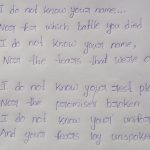 I do not know your name...
Nor for which battle you died
I do not know your name,
Nor the tears that were c
I do not know your rest pla
Nor the promises broken
I do not know your unifor
And your fears lay unspoken